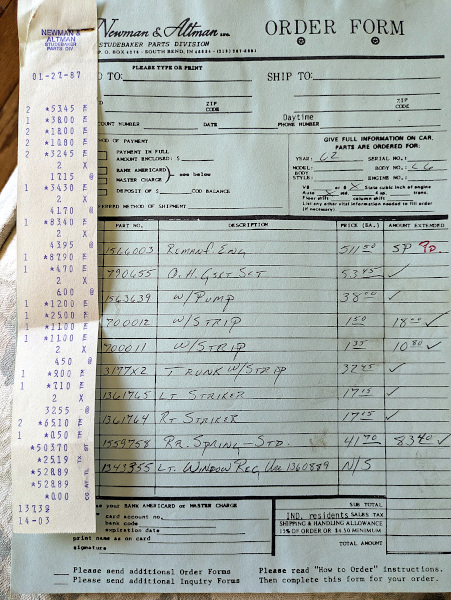 NEWMAN &
ALTMAN
STUDEBAKER
PARTS DIV
01-27-87
2 *53.45 E
1 *38.00 E
2 *18.00 E
2 *10.80 E
2 *32.45 E
2 X
17.15 @
1 *34.30 E
2 X
41.70 @
1 *83.40 E
2 X
43.95 @
1 *87.90 E
1 *4.70 E
2 X
6.00 @
1 *12.00 E
1 *25.00 E
1 *11.00 E
1 *11.00 E
2 X
4.50 @
1 *9.00 E
1 *7.10 E
2 X
32.55 @
2 *65.10 E
1 *0.50 E
*503.70 ST
*25.19 TX
*528.89
*528.89
*0.00
13738
14-03
Newman & Altman INC.
STUDEBAKER PARTS DIVISION
P. O. BOX
SOUTH BEND, IN
ORDER FORM
PLEASE TYPE OR PRINT
TO:
SHIP TO:
ZIP
CODE
ZIP
CODE
COUNT NUMBER
DATE
Daytime
PHONE NUMBER
OF PAYMENT
PAYMENT IN FULL
AMOUNT ENCLOSED $
BANK AMERICARD
MASTER CHARGE
see below
DEPOSIT OF $
COD BALANCE
FERRED METHOD OF SHIPMENT
GIVE FULL INFORMATION ON CAR.
PARTS ARE ORDERED FOR:
YEAR: 62
SERIAL NO.:
MODEL:
BODY NO.:
BODY
STYLE:
ENGINE NO.:
V8 or 6 X State cubic inch of engine
Auto X 4 sp. trans.
Floor shift column shift
List any other vital information needed to fill order
(if necessary)
PART NO.
DESCRIPTION
PRICE (EA.)
AMOUNT EXTENDED
1566003 REMANF ENG 511 50 SP
O.H. GSKT SET 53 45 ✓
1563639 W/PUMP 38 00 ✓
700012 W/STRIP 1 50 18 00 ✓
700011 W/STRIP 1 35 10 80 ✓
3177X2 TRUNK W/STRIP 32 45 ✓
1361765 LT STRIKER 17 15 ✓
1361764 RT STRIKER 17 15 ✓
1559758 RR. SPRING - STD. 41 70 83 40 ✓
1343355 LT. WINDOW REG Use 1360889 N/S
SUB TOTAL
se your BANK AMERICARD or MASTER CHARGE
card account no.
bank code
expiration date
print name as on card
signature
IND. residents SALES TAX
SHIPPING & HANDLING ALLOWANCE
15% OF ORDER OR $4.50 MINIMUM
TOTAL AMOUNT
Please send additional Order Forms
Please send additional Inquiry Forms
Please read "How to Order" instructions.
Then complete this form for your order.